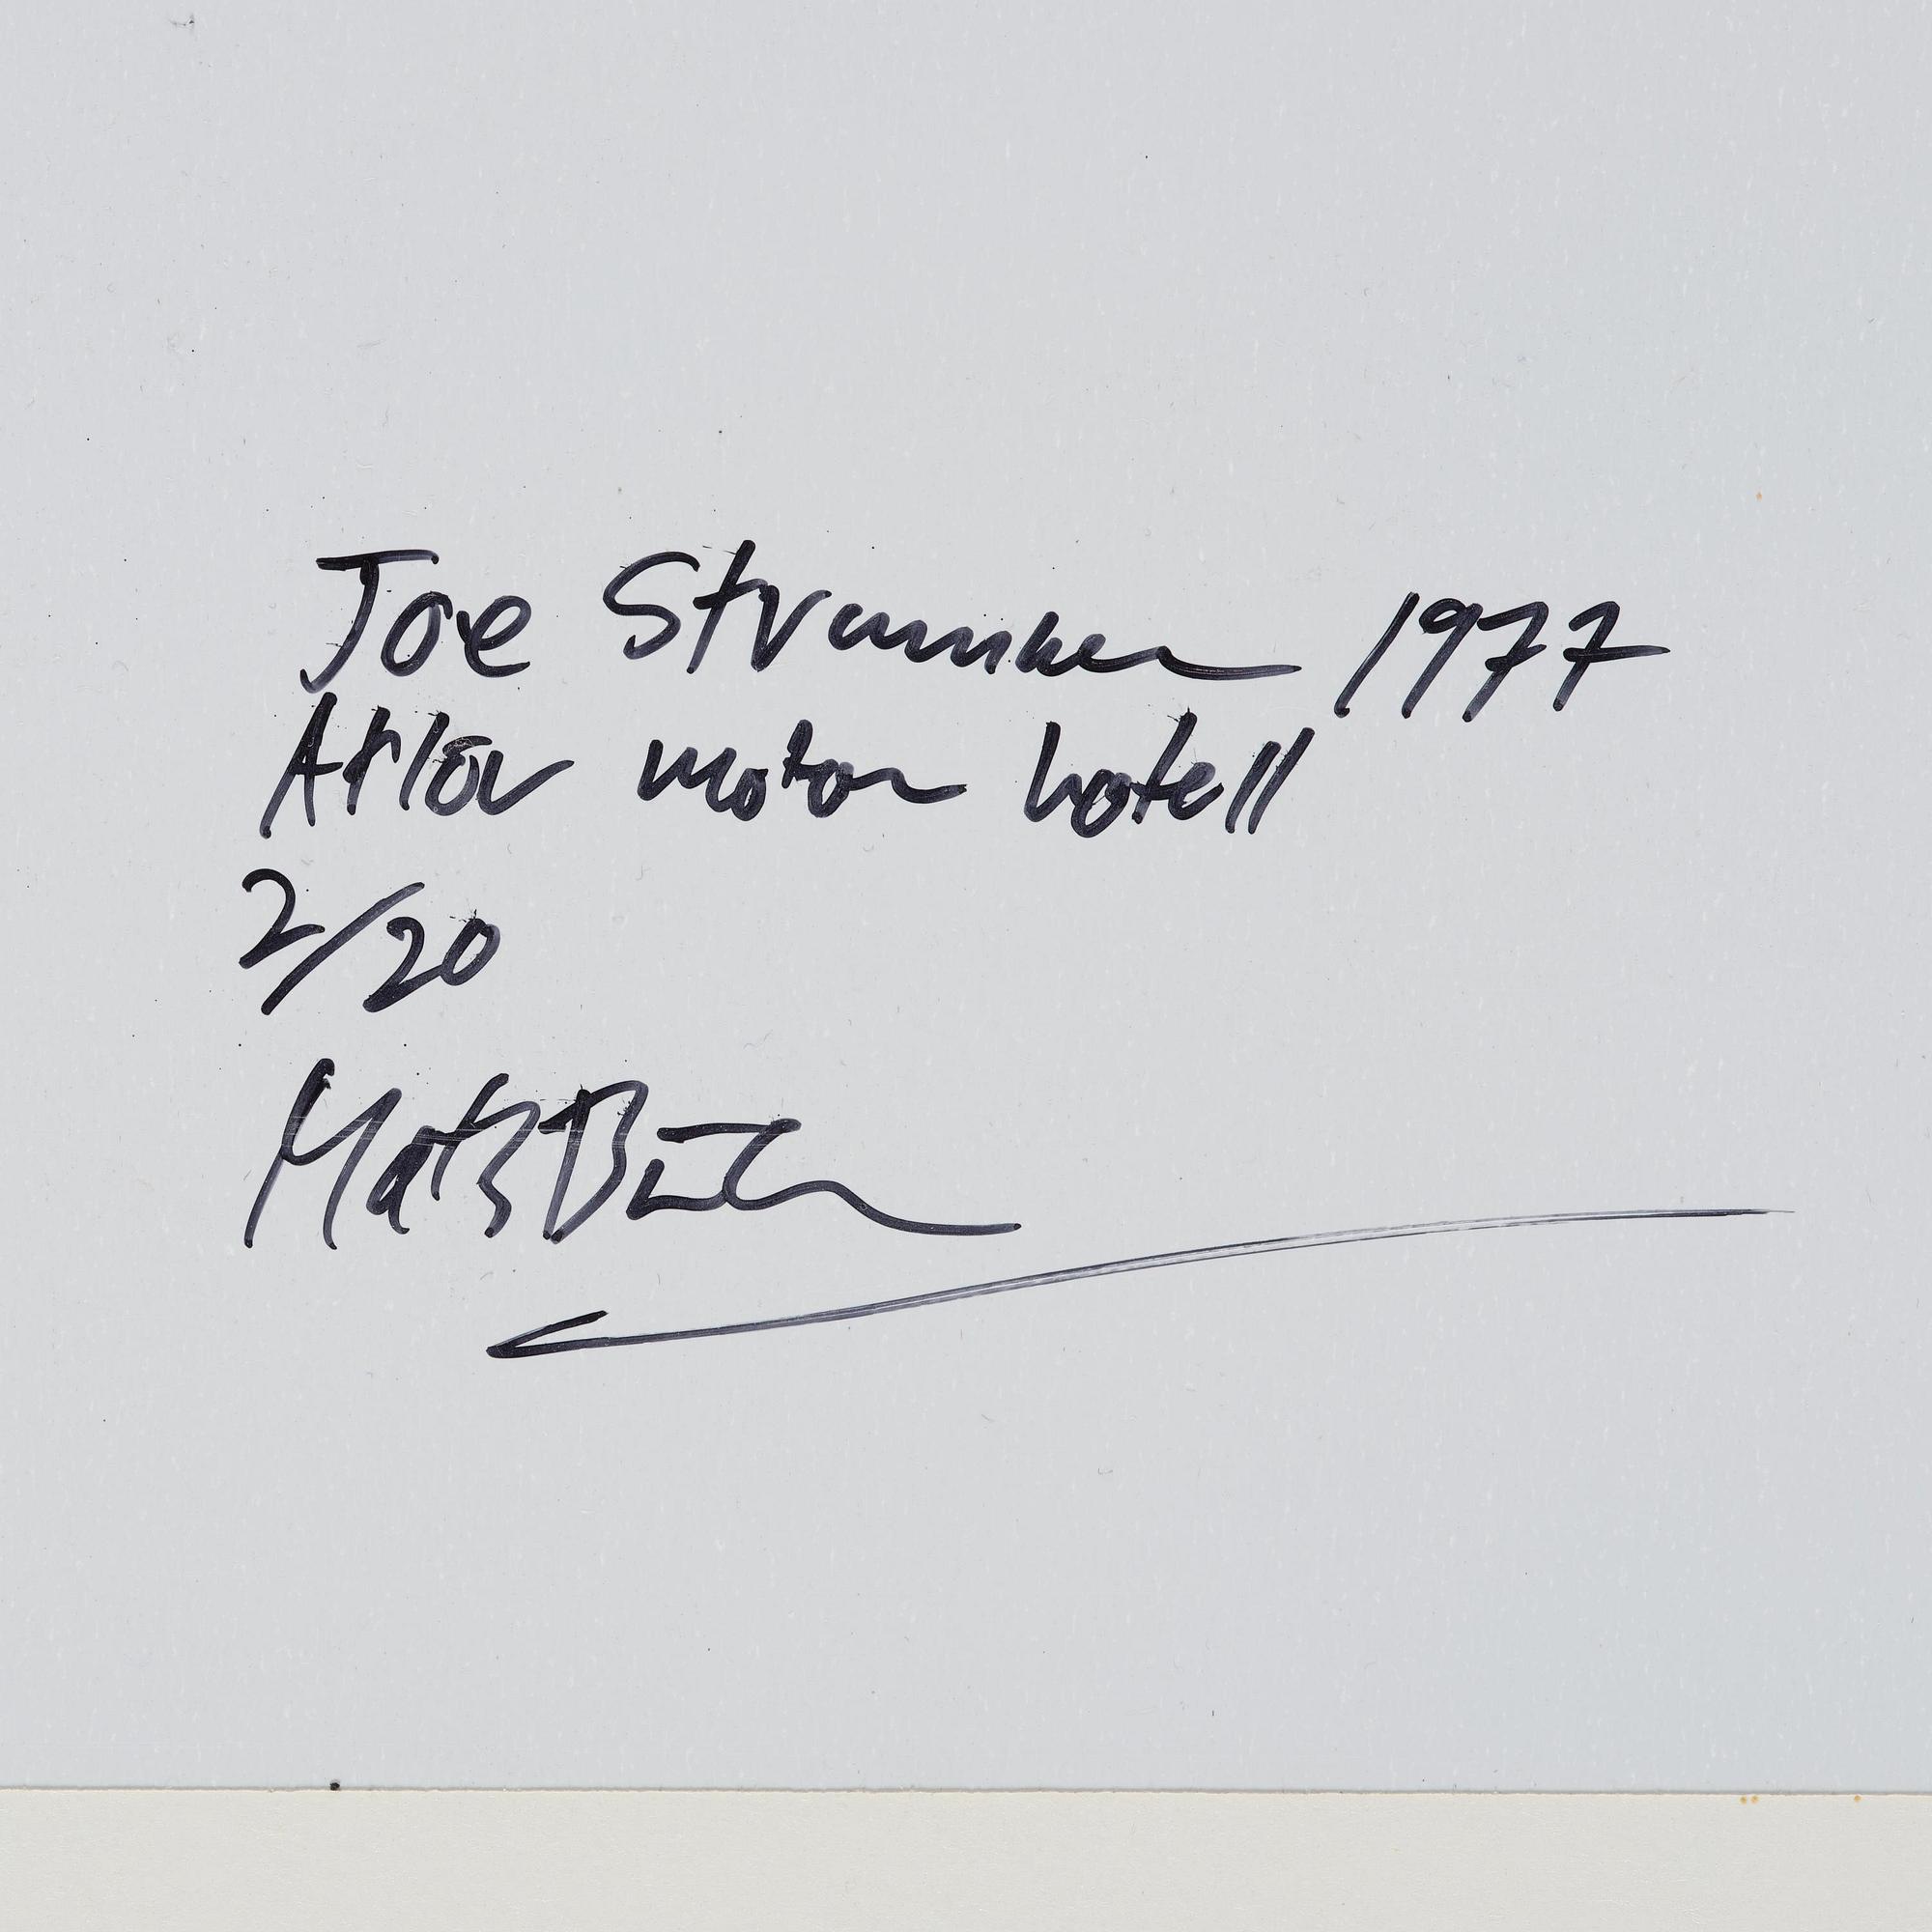 Joe Strummer 1977
motor hotell
2/20
Mats Bäcker